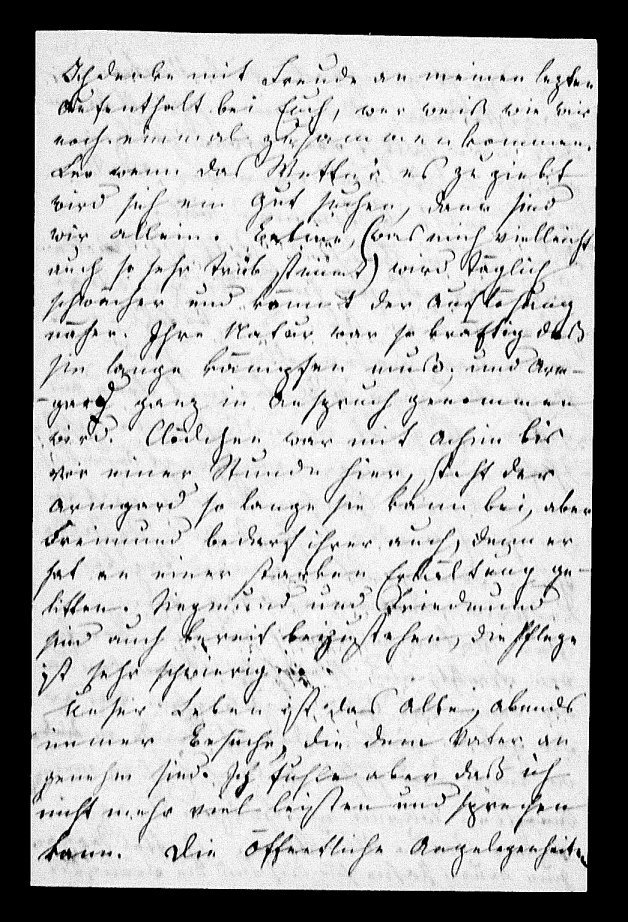 Ich denke mit Freude an meinen letzten
Aufenthalt bei Euch, wer weiß wie wir
noch einmal zusammenkommen.
wenn das Wetter es zugiebt
wird sich ein Gut suchen, dann sind
wir allein. Bettine, (was mich vielleicht
auch so sehr trüb stimmt) wird täglich
schwächer und kommt der Auflösung
näher. Ihre Natur war so kräftig daß
sie lange kämpfen muß, und Arm-
gard ganz in Anspruch genommen
wird. Clödchen war mit Achim bis
vor einer Stunde hier, steht der
Armgard so lange sie kann bei, aber
Freimund bedarf ihrer auch, denn er
hat an einer starken Erkältung ge-
litten. Siegmund und Friedmund
sind auch bereit beizustehen, die Pflege
ist sehr schwierig.
Unser Leben ist das Alte, abends
immer Besuche, die dem Vater an
genehm sind. Ich fühle aber daß ich
nicht mehr viel leisten und sprechen
kann. Die öffentliche Angelegenheiten